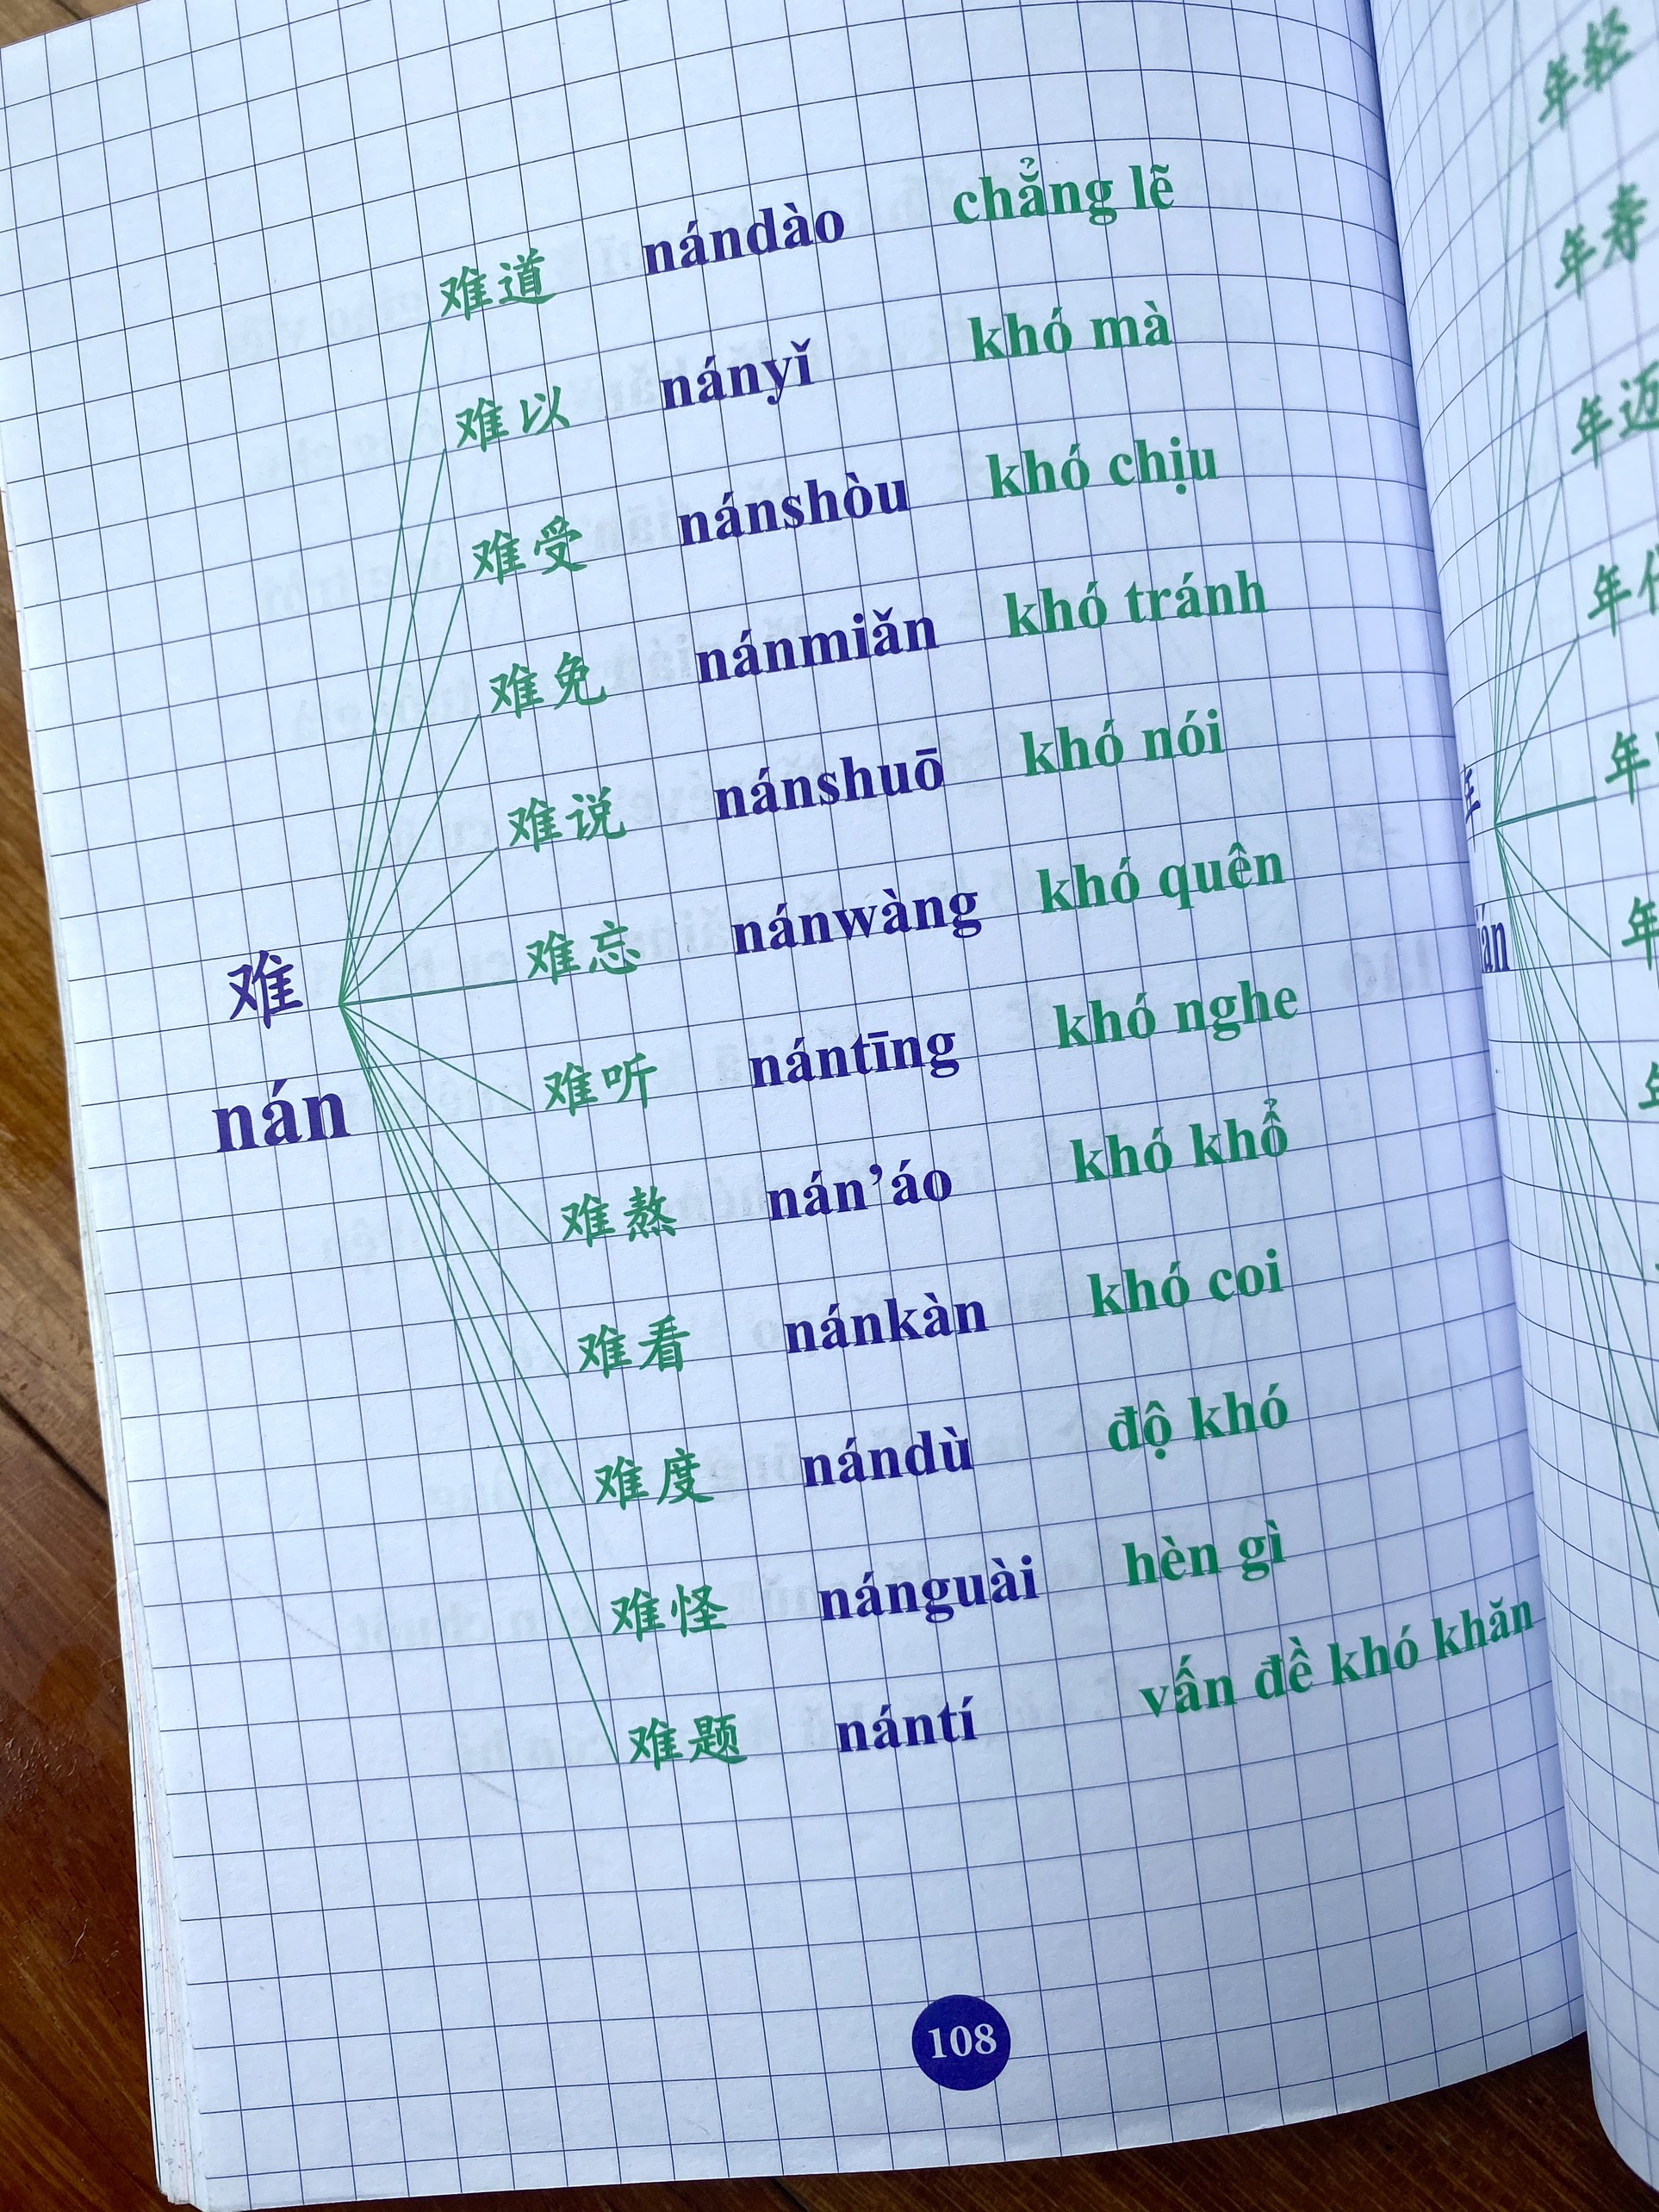 难道 nándào chẳng lẽ
难以 nányǐ khó mà
难受 nánshòu khó chịu
难免 nánmiǎn khó tránh
难说 nánshuō khó nói
难忘 nánwàng khó quên
难
nán
难听 nántīng khó nghe
难熬 nán’áo khó khổ
难看 nánkàn khó coi
难度 nándù độ khó
难怪 nánguài hèn gì
难题 nántí vấn đề khó khăn
108
年轻
年寿
年迈
年
年
年